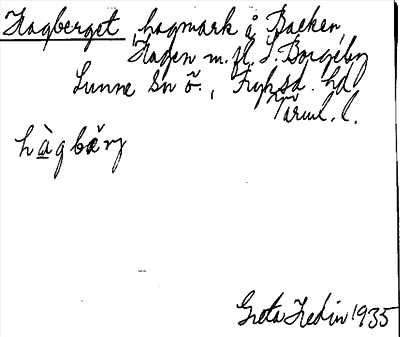 Hagberget, hagmark å Backen,
Hagen m. fl. S. Borgeby
Sunne sn ö., Fryksd. hd
Värml. l.
hàgbærj
Greta Hedin 1935